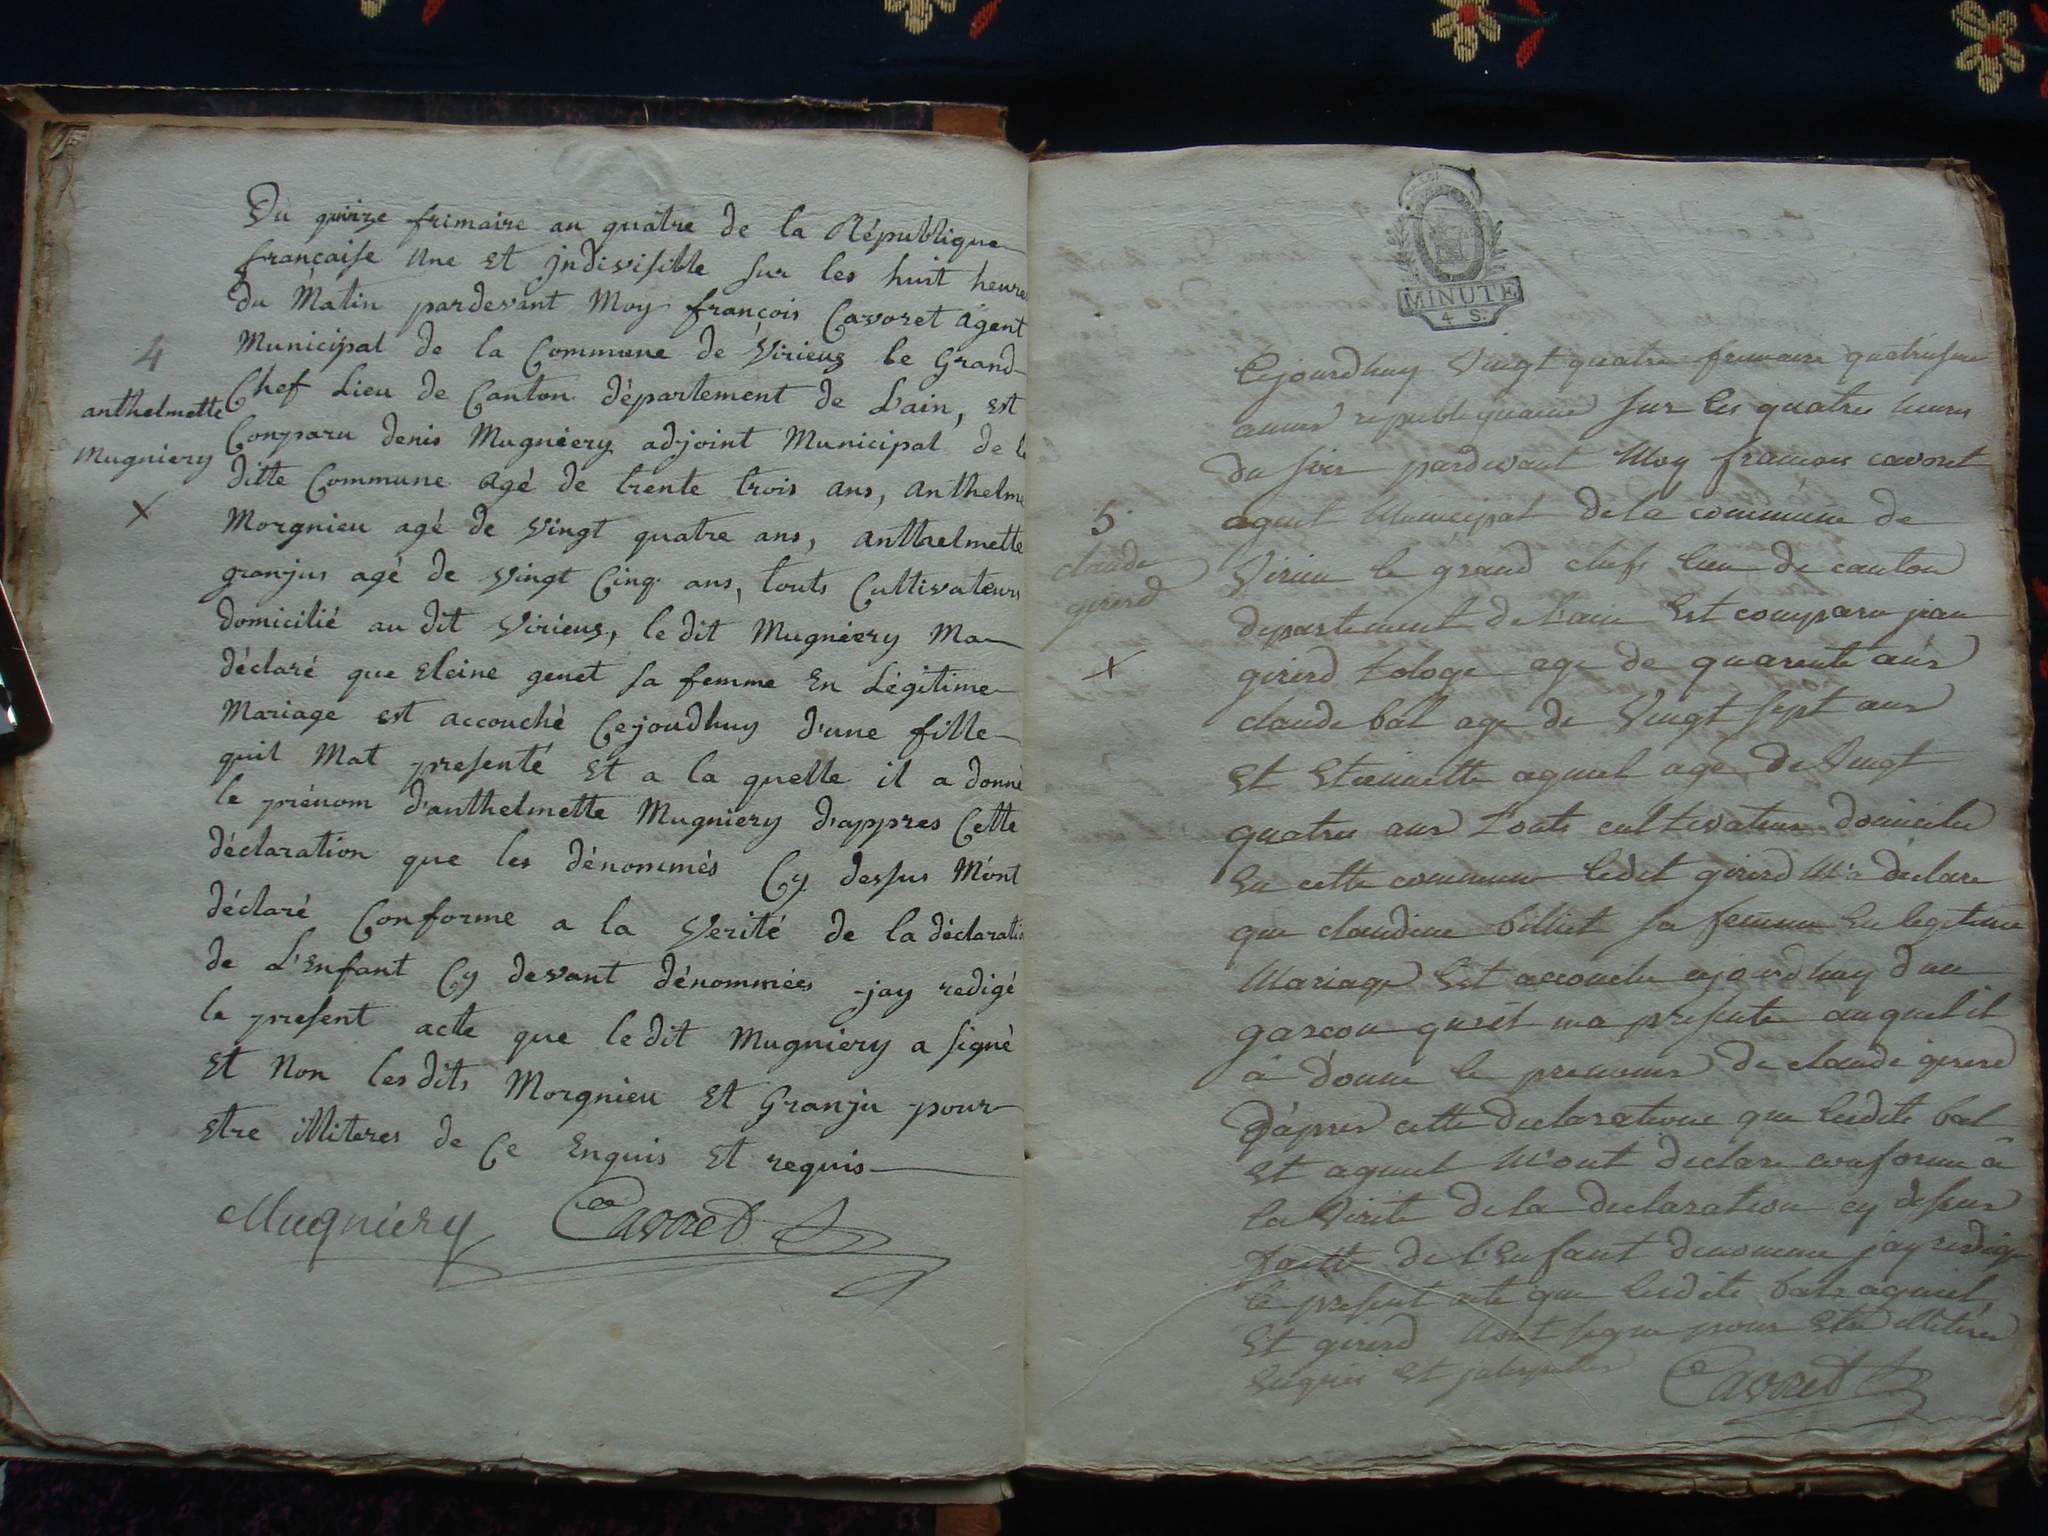 4
anthelmette
Mugniery
X
Du quinze frimaire an quatre de la République
française une et jndivisible sur les huit heures
du Matin pardevant Moy françois Cavoret Agent
Municipal de la Commune de Virieux le Grand
Chef Lieu de Canton département de L'ain, est
Conparu denis Mugniery adjoint Municipal de la
ditte Commune agé de trente trois ans, anthelme
Morgnieu agé de vingt quatre ans, anthaelmette
granjus agé de vingt Cinq ans, touts Cultivateurs
domicilié au dit Virieux, le dit Mugniery Ma
déclaré que eleine genet sa femme en Légitime
Mariage est accouché Cejoudhuy d'une fille
quil Mat presenté et a la quelle il a donné
le prénom d'anthelmette Mugniery d'appres Cette
déclaration que les dénommés Cy dessus M'ont
déclaré Conforme a la Verité de la déclaratio
de L'enfant Cy devant dénommées jay redigé
le present acte que le dit Mugniery a signé
et Non les dits Morgnieu et Granju pour
etre illiteres de Ce enquis et requis
Mugniery Cavoret
MINUTE
4 S.
5
claude
girerd
X
Cejourdhuy vingt quatre frimaire quatrieme
année republiquaine sur les quatres heures
du soir pardevant Moy francois cavoret
agent Municipal de la commune de
Virieu le grand chefs lieu de canton
departement de L'ain est comparu jean
girerd age de quarente ans
claude bal age de vingt sept ans
et etiennette agé de vingt
quatres ans touts cultivateurs domicilie
en cette commune ledit girerd M'a declare
que claudine billiet sa femme en legitime
Mariage est accouche cejourdhuy d'un
garcon ma presente auquel il
a donne le prenoms de claude girerd
d'apres cette declaratione que lesdits bal
et M'ont declare conforme a
la Verite de la declaration cy dessus
de l'enfant denomme jay redige
le present acte que lesdits bal
et girerd n'ont signe pour etre illiteres
enquis et
Cavoret